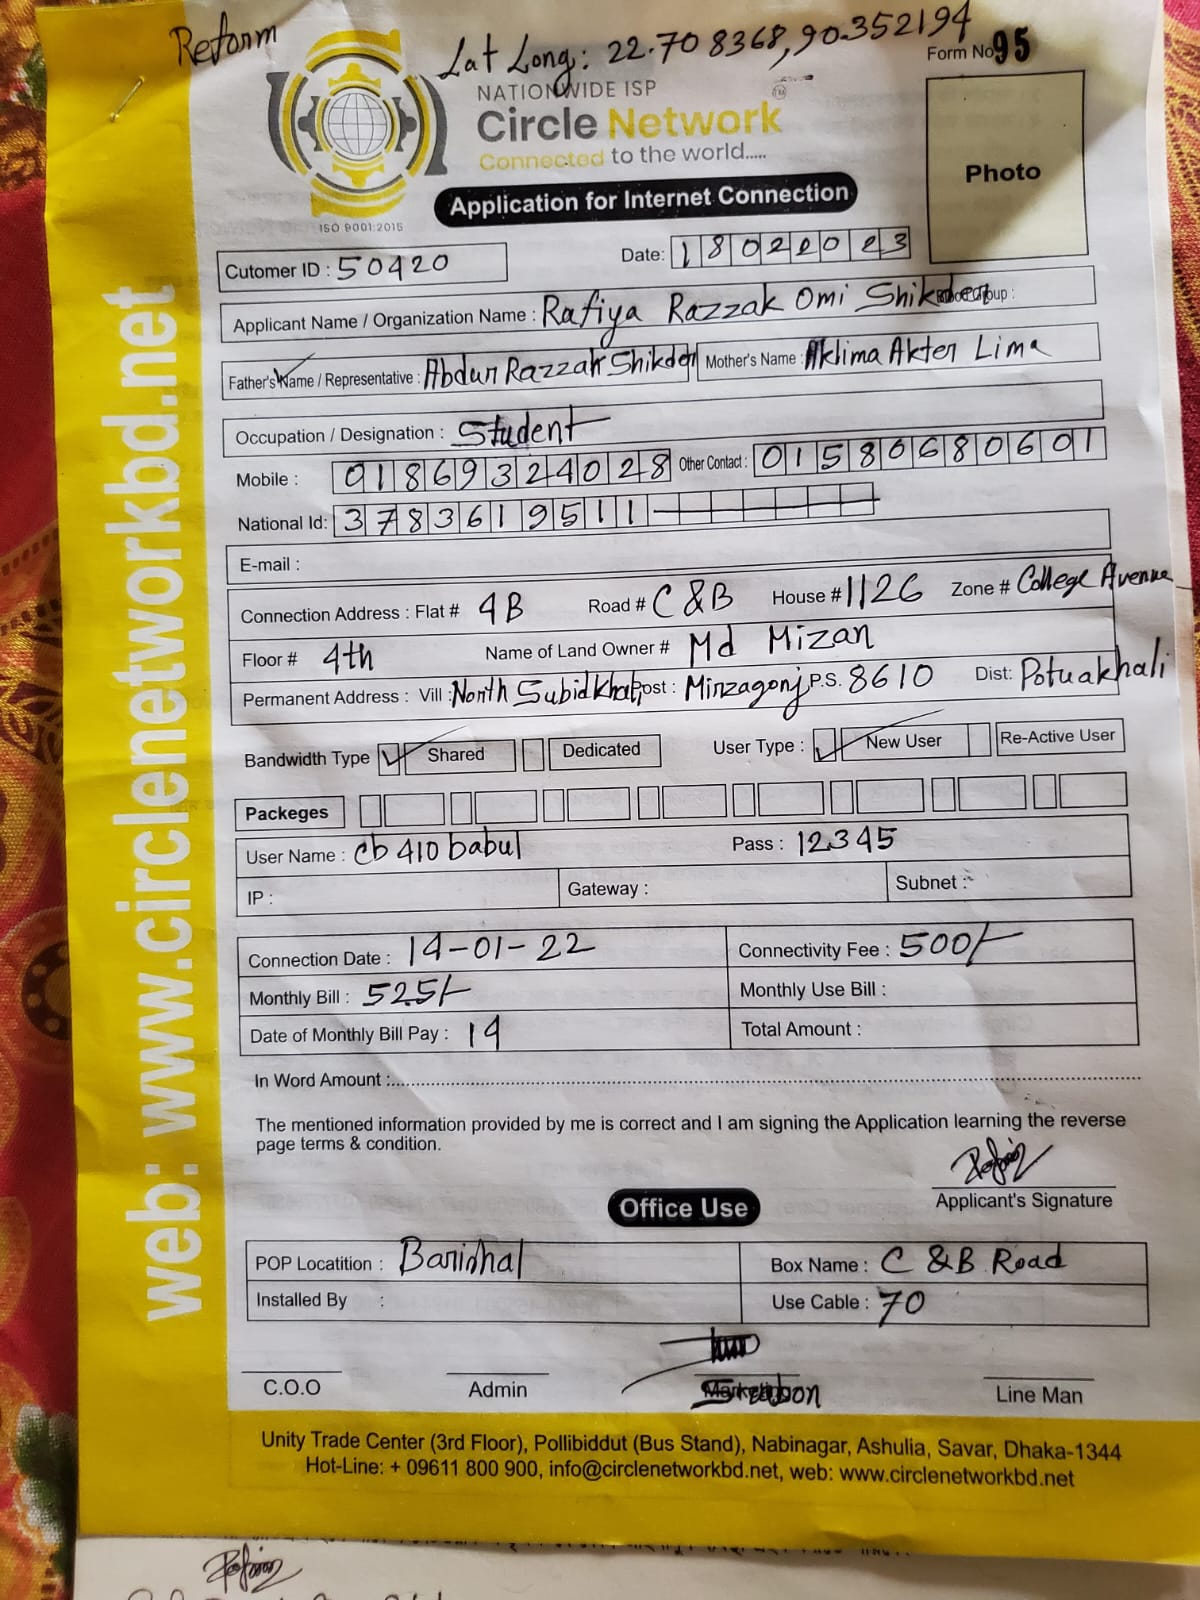 Reform
Lat Long: 22.708368,90.352194
Form No 95
NATIONWIDE ISP
Circle Network
Connected to the world.....
ISO 9001:2015
Photo
Application for Internet Connection
Cutomer ID : 50420
Date: 18022023
Applicant Name / Organization Name : Rafiya Razzak Omi Shikder
Father's Name / Representative : Abdur Razzak Shikder Mother's Name : Aklima Akter Lima
Occupation / Designation : Student
Mobile : 01869324028 Other Contact : 01580680601
National Id: 3783619511
E-mail :
Connection Address : Flat # 4B Road # C & B House # 1126 Zone # College Avenue
Floor # 4th Name of Land Owner # Md Mizan
Permanent Address : Vill : North Subidkhali Post : Mirzagonj P.S. 8610 Dist: Potuakhali
Bandwidth Type Shared Dedicated User Type : New User Re-Active User
Packeges
User Name : cb410babul Pass : 12345
IP : Gateway : Subnet :
Connection Date : 14-01-22 Connectivity Fee : 500/-
Monthly Bill : 525/- Monthly Use Bill :
Date of Monthly Bill Pay : 14 Total Amount :
In Word Amount :
The mentioned information provided by me is correct and I am signing the Application learning the reverse
page terms & condition.
Applicant's Signature
Office Use
POP Locatition : Barishal Box Name : C & B Road
Installed By : Use Cable : 70
C.O.O Admin Line Man
Unity Trade Center (3rd Floor), Pollibiddut (Bus Stand), Nabinagar, Ashulia, Savar, Dhaka-1344
Hot-Line: + 09611 800 900, info@circlenetworkbd.net, web: www.circlenetworkbd.net
web: www.circlenetworkbd.net